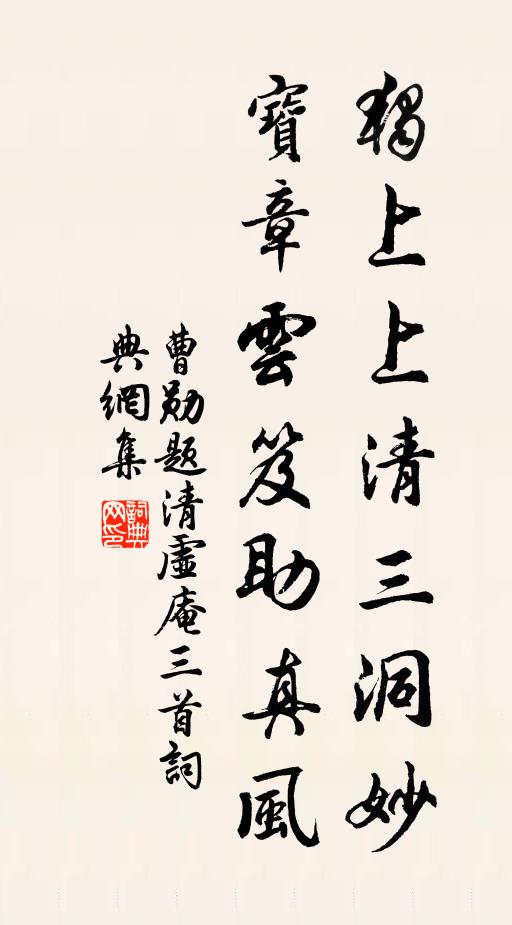 獨上上清三洞妙
寶章雲笈助真風
曹勛题清虛庵三首詞
典網集
詞典网印